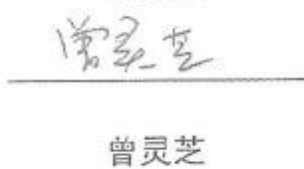 曾灵芝
曾灵芝